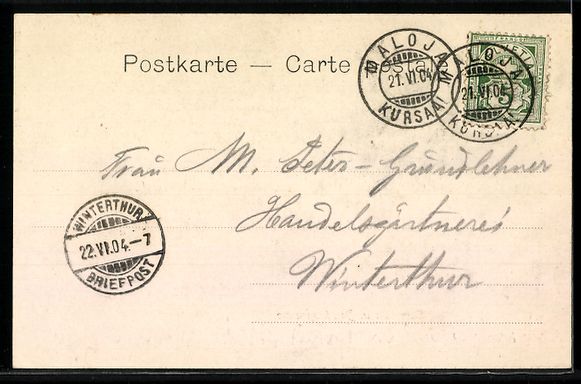 Postkarte — Carte postale
MALOJA
21.VI.04
KURSAAL
MALOJA
21.VI.04
KURSAAL
HELVETIA
5
Frau M. Peter-Gründlehner
Handelsgärtnerei
Winterthur
WINTERTHUR
22.VI.04.–7
BRIEFPOST